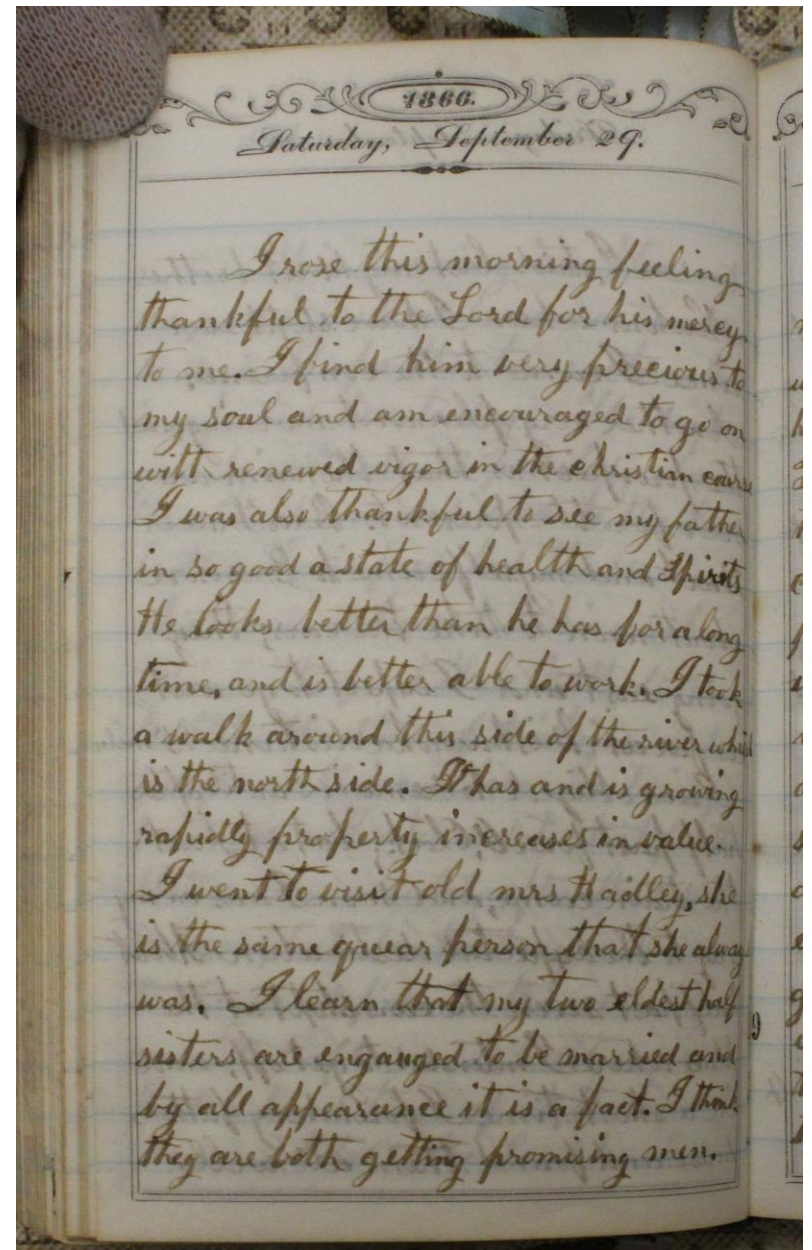 1866.
Saturday, September 29.
I rose this morning feeling
thankful to the Lord for his mercy
to me. I find him very precious to
my soul and am encouraged to go on
with renewed vigor in the christian course
I was also thankful to see my father
in so good a state of health and Spirits
He looks better than he has for a long
time, and is better able to work. I took
a walk around this side of the river which
is the north side. It has and is growing
rapidly property increases in value.
I went to visit old, mrs Hadley, she
is the same quear person that she alway
was. I learn that my two eldest half
sisters are engauged to be married and
by all appearance it is a fact. I think
they are both getting promising men.
9